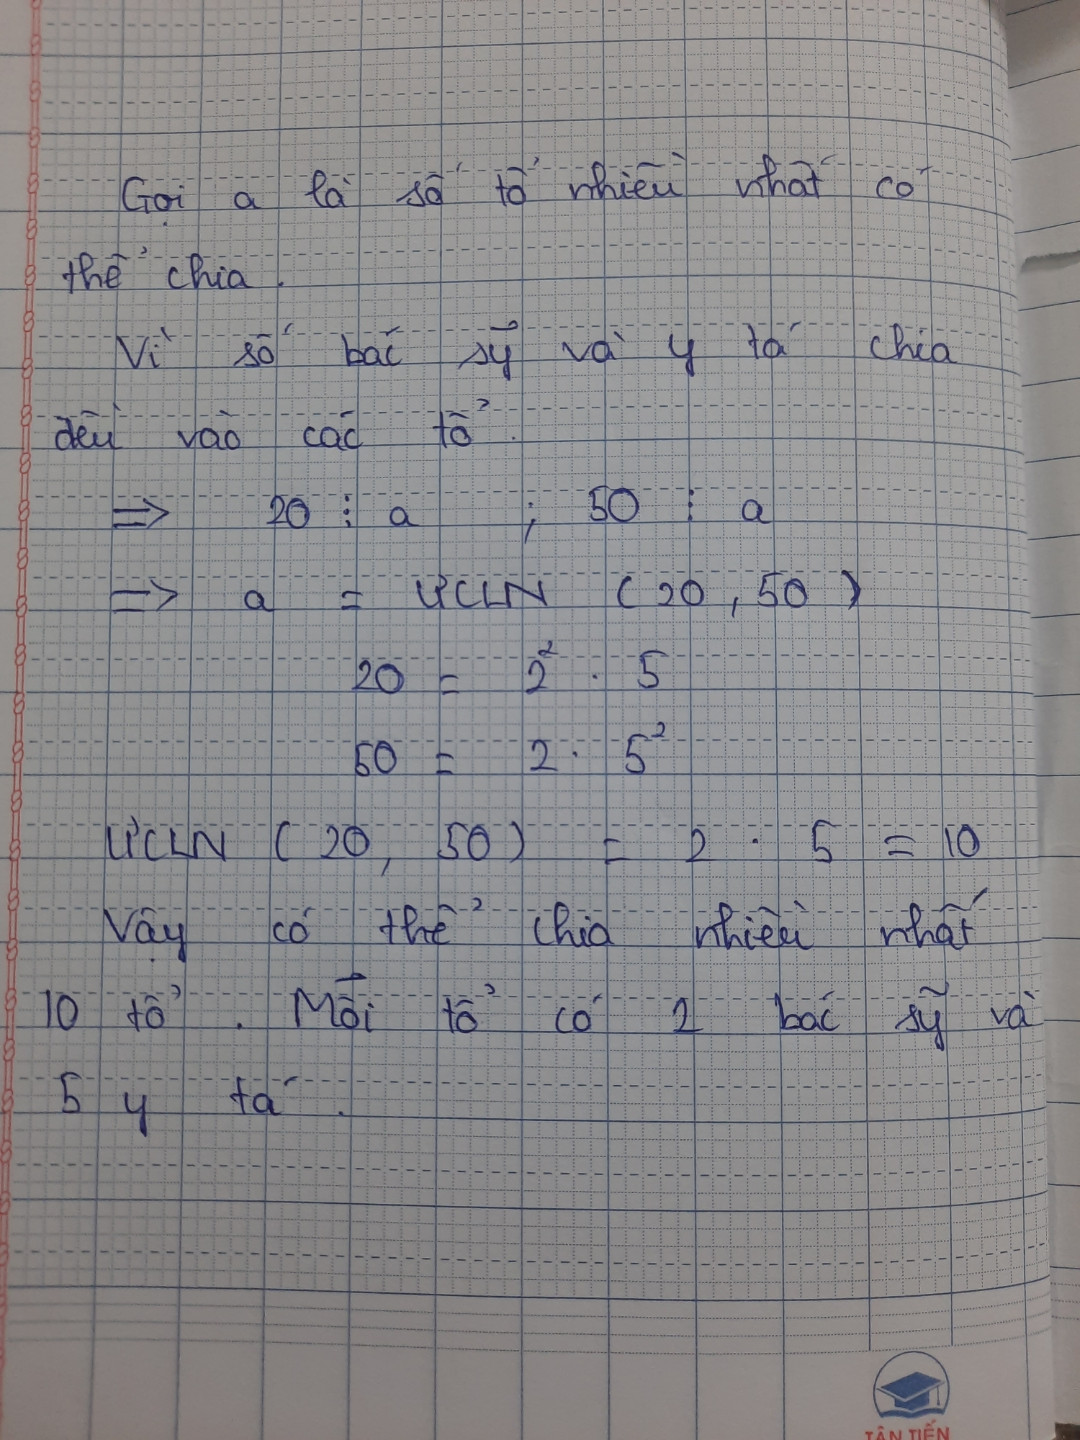 Gọi a là số tổ nhiều nhất có
thể chia.
Vì số bác sỹ và y tá chia
đều vào các tổ.
=> 20 ⋮ a ; 50 ⋮ a
=> a = ƯCLN (20, 50)
20 = 2² . 5
50 = 2 . 5²
ƯCLN (20, 50) = 2 . 5 = 10
Vậy có thể chia nhiều nhất
10 tổ. Mỗi tổ có 2 bác sỹ và
5 y tá.
TÂN TIẾN